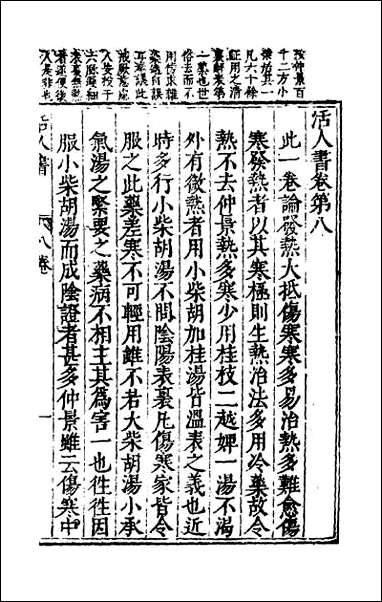 按仲景百
十二方小
凡六十餘
証用之清
一藥也世
俗去而不
活人書卷第八
此一卷論發熱大抵傷寒寒多易治熱多難愈傷
寒發熱者以其寒極則生熱治法多用冷藥故令
熱不去仲景熱多寒少用桂枝二越婢一湯不渴
外有微熱者用小柴胡加桂湯皆溫表之義也近
時多行小柴胡湯不問陰陽表裏凡傷寒家皆令
服之此藥差寒不可輕用雖不若大柴胡湯小承
氣湯之緊要之藥病不相主其爲害一也徃徃因
服小柴胡湯而成陰證者甚多仲景雖云傷寒中
活人書 八卷 一